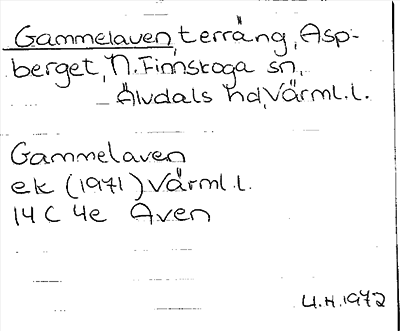 Gammelaven, terräng, Asp-
berget, N. Finnskoga sn,
Älvdals hd, Värml.l.
Gammelaven
ek (1971) Värml.l.
14 C 4e Aven
U.H. 1972